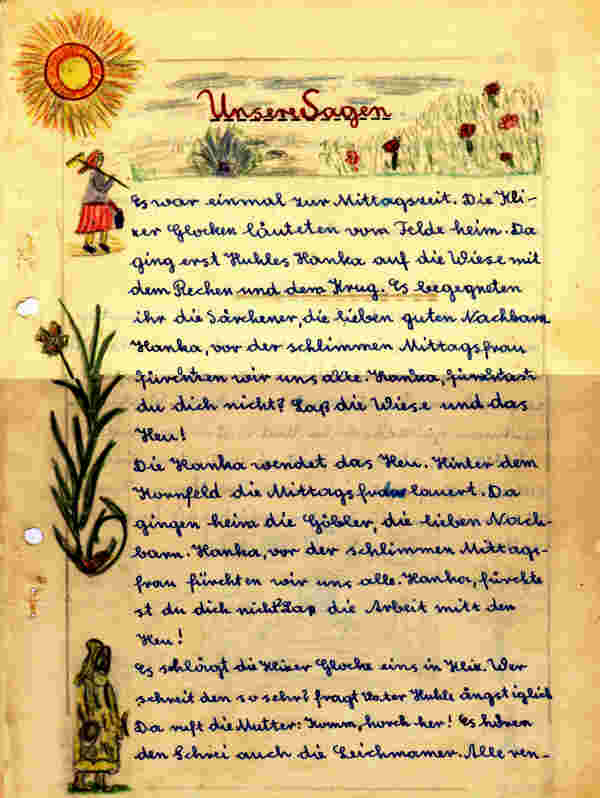 Unsere Sagen
Es war einmal zur Mittagszeit. Die Kli-
xer Glocken läuteten vom Felde heim. Da
ging erst Kuhles Hanka auf die Wiese mit
dem Rechen und dem Krug. Es begegneten
ihr die Särchener, die lieben guten Nachbarn
Hanka, vor der schlimmen Mittagsfrau
fürchten wir uns alle. Hanka, fürchtest
du dich nicht? Laß die Wiese und das
Heu!
Die Hanka wendet das Heu. Hinter dem
Kornfeld die Mittagsfrau lauert. Da
gingen heim die Göbler, die lieben Nach-
barn. Hanka, vor der schlimmen Mittags-
frau fürchten wir uns alle. Hanka, fürchte
st du dich nicht? Laß die Arbeit mitt den
Heu!
Es schlägt die Klixer Glocke eins in Klix. Wer
schreit den so sehr? fragt Vater Kuhle ängstiglich
Da ruft die Mutter: Komm, horch her! Es hören
den Schrei auch die Leichmamer. Alle ren-